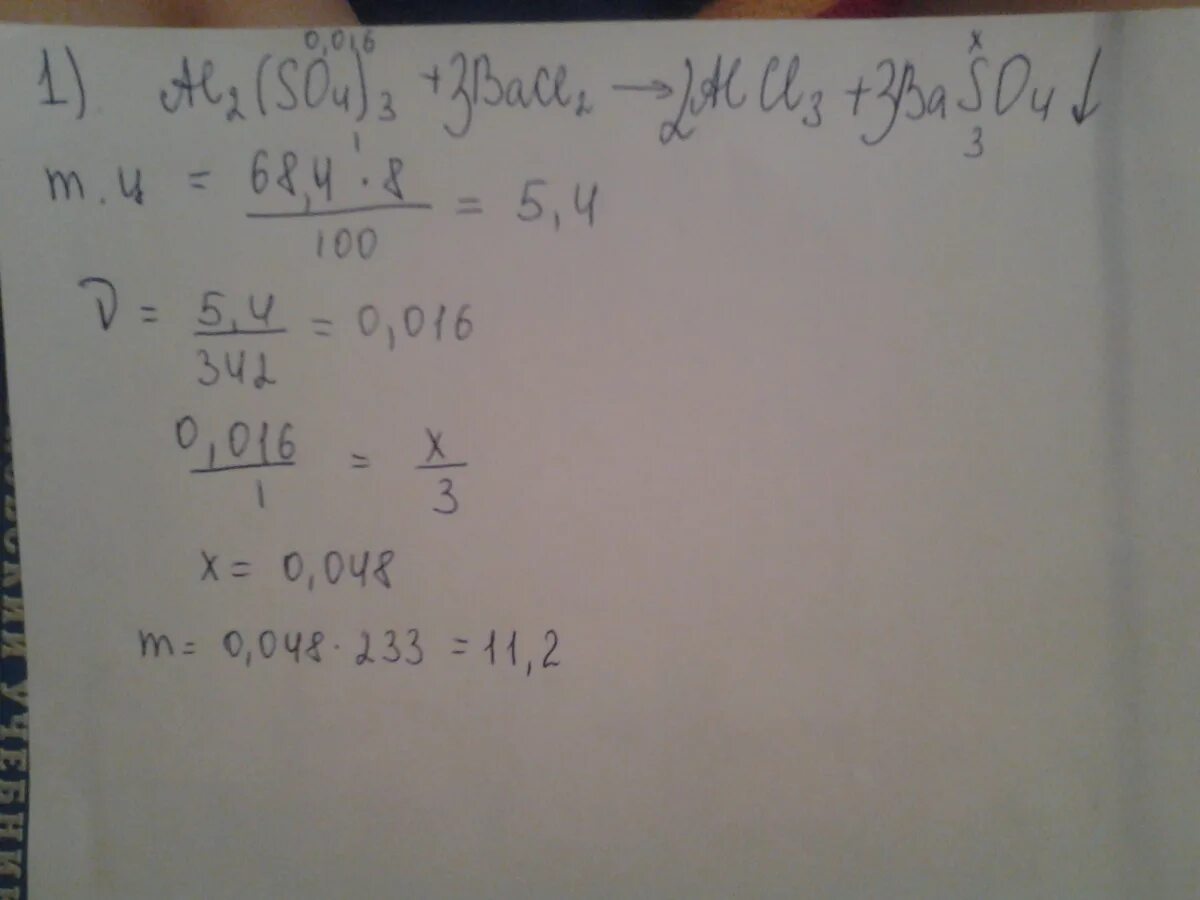 0,016 x
1). Al₂(SO₄)₃ + 3BaCl₂ → 2AlCl₃ + 3BaSO₄↓
1 3
m.ч = 68,4 · 8 / 100 = 5,4
ν = 5,4 / 342 = 0,016
0,016 / 1 = x / 3
x = 0,048
m = 0,048 · 233 = 11,2
УЧЕБНИК